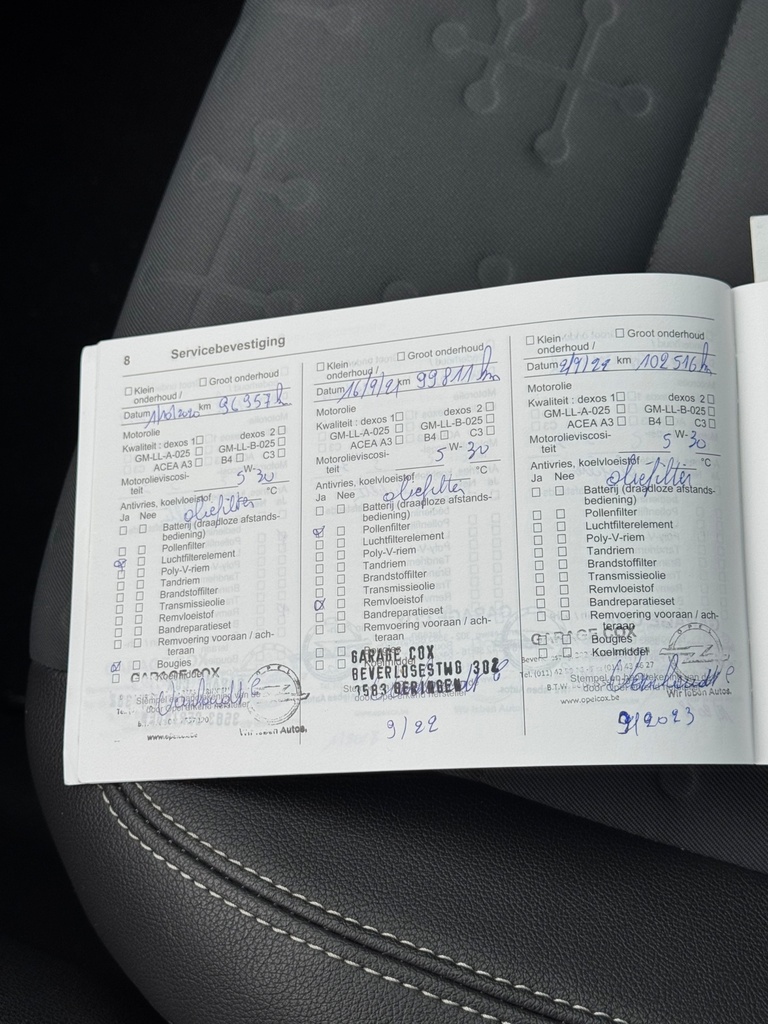 8 Servicebevestiging
☐ Klein onderhoud / ☐ Groot onderhoud
Datum km 96957 km
Motorolie
Kwaliteit : dexos 1 ☐ dexos 2 ☐
GM-LL-A-025 ☐ GM-LL-B-025 ☐
ACEA A3 ☐ B4 ☐ C3 ☐
Motorolieviscosi-
teit 5 W- 30
Antivries, koelvloeistof °C
oliefilter
Ja Nee
☐ ☐ Batterij (draadloze afstands-
bediening)
☐ ☐ Pollenfilter
☒ ☐ Luchtfilterelement
☐ ☐ Poly-V-riem
☐ ☐ Tandriem
☐ ☐ Brandstoffilter
☐ ☐ Transmissieolie
☐ ☐ Remvloeistof
☐ ☐ Bandreparatieset
☐ ☐ Remvoering vooraan / ach-
teraan
☒ ☐ Bougies
GARAGE COX
OPEL
www.opelcox.be
Wir leben Autos.
☐ Klein onderhoud / ☐ Groot onderhoud
Datum 16/9/21 km 99811 km
Motorolie
Kwaliteit : dexos 1 ☐ dexos 2 ☐
GM-LL-A-025 ☐ GM-LL-B-025 ☐
ACEA A3 ☐ B4 ☐ C3 ☐
Motorolieviscosi-
teit 5 W- 30
Antivries, koelvloeistof °C
oliefilter
Ja Nee
☐ ☐ Batterij (draadloze afstands-
bediening)
☒ ☐ Pollenfilter
☐ ☐ Luchtfilterelement
☐ ☐ Poly-V-riem
☐ ☐ Tandriem
☐ ☐ Brandstoffilter
☐ ☐ Transmissieolie
☒ ☐ Remvloeistof
☐ ☐ Bandreparatieset
☐ ☐ Remvoering vooraan / ach-
teraan
GARAGE COX
BEVERLOSESTWG 302
3583 BERINGEN
9/22
☐ Klein onderhoud / ☐ Groot onderhoud
Datum 2/9/22 km 102516 km
Motorolie
Kwaliteit : dexos 1 ☐ dexos 2 ☐
GM-LL-A-025 ☐ GM-LL-B-025 ☐
ACEA A3 ☐ B4 ☐ C3 ☐
Motorolieviscosi-
teit 5 W- 30
Antivries, koelvloeistof °C
oliefilter
Ja Nee
☐ ☐ Batterij (draadloze afstands-
bediening)
☐ ☐ Pollenfilter
☐ ☐ Luchtfilterelement
☐ ☐ Poly-V-riem
☐ ☐ Tandriem
☐ ☐ Brandstoffilter
☐ ☐ Transmissieolie
☐ ☐ Remvloeistof
☐ ☐ Bandreparatieset
☐ ☐ Remvoering vooraan / ach-
teraan
☐ ☐ Bougies
☐ ☐ Koelmiddel
GARAGE COX
www.opelcox.be
Wir leben Autos.
9/2023